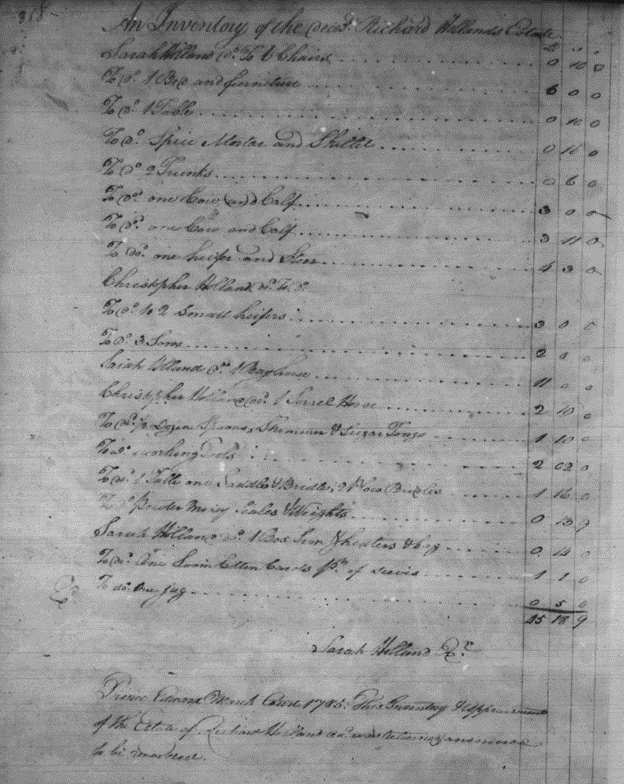 An Inventory of the Decd. Richard Hollands Estate
Sarah Holland Dr. To 6 Chairs 0 10 0
To do. 1 Bed and furniture 6 0 0
To do. 1 Table 0 10 0
To do. Spice Mortar and Skillet 0 16 0
To do. 2 Trunks 0 6 0
To do. one Cow and Calf 3 0 0
To do. one Cow and Calf 3 11 0
To do. one heifer and Steer 4 3 0
Christopher Holland Dr. To
To do. to 2 Small heifers 3 0 0
To do. 3 Sows 2 0 0
Sarah Holland Dr. 1 Bay horse 11 0 0
Christopher Holland Dr. 1 Sorrel Horse 2 10 0
To do. Dozen Spoons, Skimmer & Sugar Tongs 1 10 0
To do. working Tools 2 02 0
To do. 1 Table one Saddle & Bridle, 2 1 16 0
To do. Money Scales & Weights 0 13 9
Sarah Holland Dr. 1 Box Iron heaters & 0 14 0
To do. One Cotton Cards of 1 1 0
To do. One Jug 0 5 0
45 18 9
Sarah Holland Ex.
Prince Edward March Court 1785. This Inventory & Appraisement
of the Estate of Richard Holland was returned and
to be recorded.